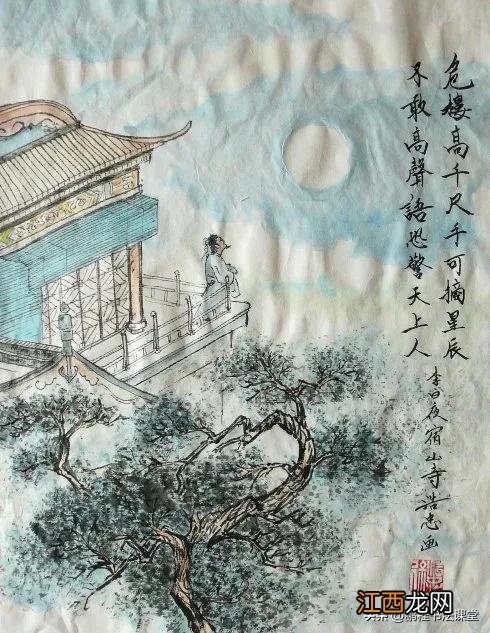 危樓高千尺手可摘星辰
不敢高聲語恐驚天上人
李白夜宿山寺浩忠画
江西龙网
书法课堂